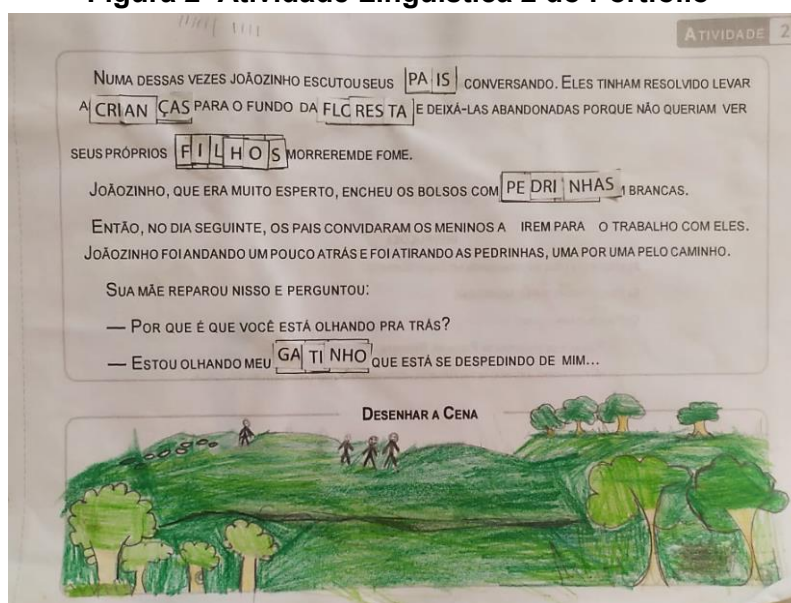 Figura 2 Atividade Linguística 2 do Portfólio
ATIVIDADE 2
NUMA DESSAS VEZES JOÃOZINHO ESCUTOU SEUS PAIS CONVERSANDO. ELES TINHAM RESOLVIDO LEVAR
A CRIANÇAS PARA O FUNDO DA FLORESTA E DEIXÁ-LAS ABANDONADAS PORQUE NÃO QUERIAM VER
SEUS PRÓPRIOS FILHOS MORREREM DE FOME.
JOÃOZINHO, QUE ERA MUITO ESPERTO, ENCHEU OS BOLSOS COM PEDRINHAS BRANCAS.
ENTÃO, NO DIA SEGUINTE, OS PAIS CONVIDARAM OS MENINOS A IREM PARA O TRABALHO COM ELES.
JOÃOZINHO FOI ANDANDO UM POUCO ATRÁS E FOI ATIRANDO AS PEDRINHAS, UMA POR UMA PELO CAMINHO.
SUA MÃE REPAROU NISSO E PERGUNTOU:
— POR QUE É QUE VOCÊ ESTÁ OLHANDO PRA TRÁS?
— ESTOU OLHANDO MEU GATINHO QUE ESTÁ SE DESPEDINDO DE MIM...
DESENHAR A CENA